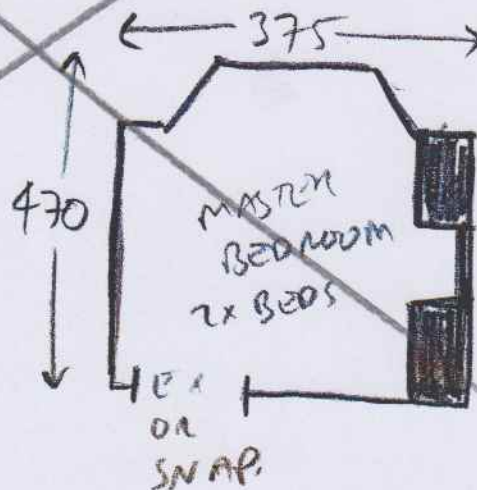 375
470
MASTER
BEDROOM
2X BEDS
EX
OR
SNAP.